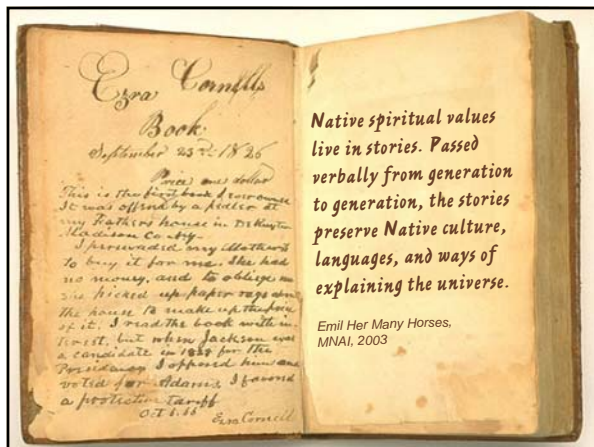 Ezra Cornell's
Book
September 23rd 1826
Price one dollar
This is the first book I ever owned
It was offered by a pedler at
my Fathers house in DeRuyter
Madison County.
I prevaded my Mother
to buy it for me. She had
no money, and to oblige me
she picked up paper rags about
the house to make up the price
of it. I read the book with in-
terest, but when Jackson was
a candidate in 1828 for the
Presidency I opposed him and
voted for Adams, I favored
a protective tariff
Oct 5.
Ezra Cornell
Native spiritual values
live in stories. Passed
verbally from generation
to generation, the stories
preserve Native culture,
languages, and ways of
explaining the universe.
Emil Her Many Horses,
MNAI, 2003